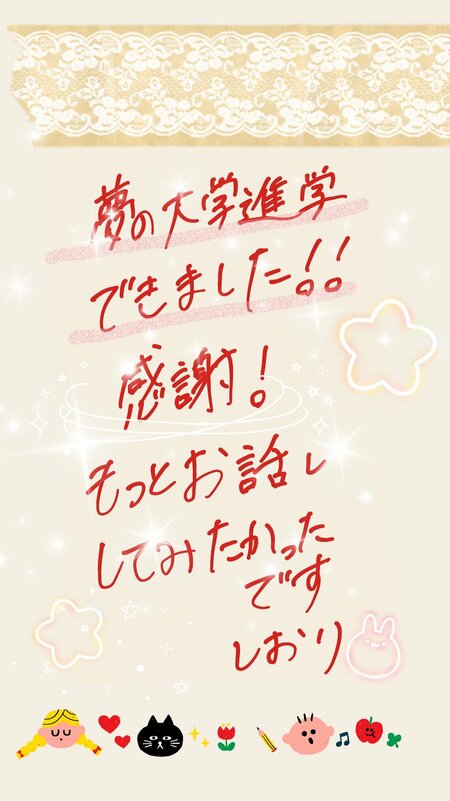 夢の大学進学
できました!!
感謝!
もっとお話し
してみたかった
です
しおり